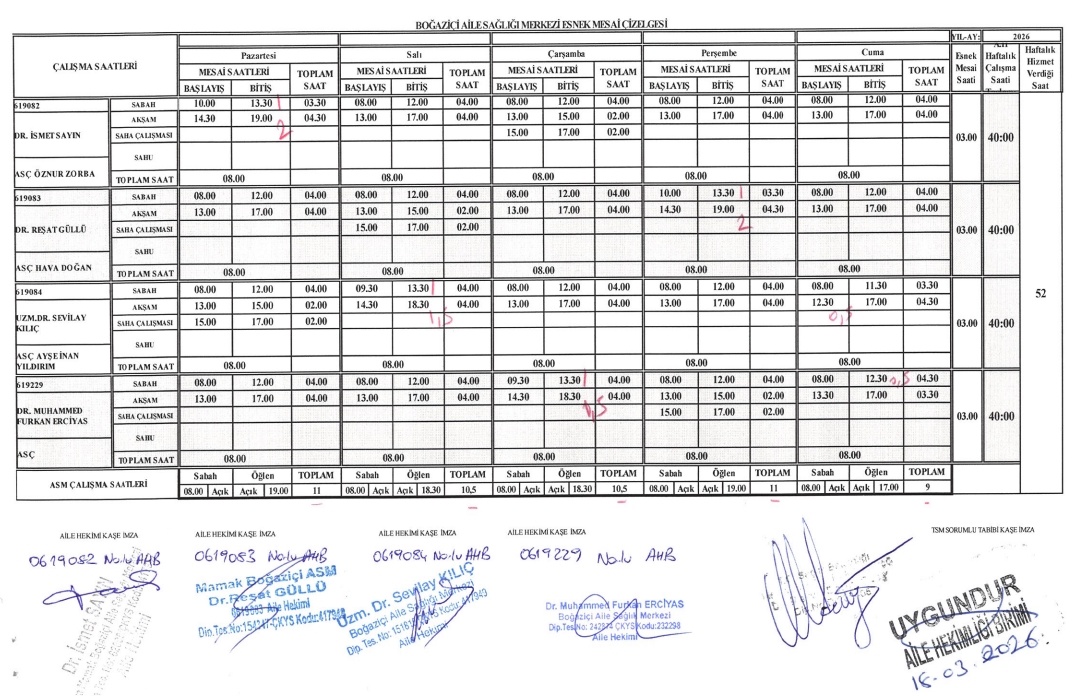 BOĞAZİÇİ AİLE SAĞLIĞI MERKEZİ ESNEK MESAİ ÇİZELGESİ
YIL-AY: 2026
ÇALIŞMA SAATLERİ Pazartesi Salı Çarşamba Perşembe Cuma Esnek Mesai Saati Haftalık Çalışma Saati Haftalık Hizmet Verdiği Saat
MESAİ SAATLERİ TOPLAM SAAT MESAİ SAATLERİ TOPLAM SAAT MESAİ SAATLERİ TOPLAM SAAT MESAİ SAATLERİ TOPLAM SAAT MESAİ SAATLERİ TOPLAM SAAT
BAŞLAYIŞ BİTİŞ BAŞLAYIŞ BİTİŞ BAŞLAYIŞ BİTİŞ BAŞLAYIŞ BİTİŞ BAŞLAYIŞ BİTİŞ
619082 SABAH 10.00 13.30 03.30 08.00 12.00 04.00 08.00 12.00 04.00 08.00 12.00 04.00 08.00 12.00 04.00
AKŞAM 14.30 19.00 04.30 13.00 17.00 04.00 13.00 15.00 02.00 13.00 17.00 04.00 13.00 17.00 04.00
2
DR. İSMET SAYIN SAHA ÇALIŞMASI 15.00 17.00 02.00 03.00 40:00
SAHU
ASÇ ÖZNUR ZORBA TOPLAM SAAT 08.00 08.00 08.00 08.00 08.00
619083 SABAH 08.00 12.00 04.00 08.00 12.00 04.00 08.00 12.00 04.00 10.00 13.30 03.30 08.00 12.00 04.00
AKŞAM 13.00 17.00 04.00 13.00 15.00 02.00 13.00 17.00 04.00 14.30 19.00 04.30 13.00 17.00 04.00
2
DR. REŞAT GÜLLÜ SAHA ÇALIŞMASI 15.00 17.00 02.00 03.00 40:00
SAHU
ASÇ HAVA DOĞAN TOPLAM SAAT 08.00 08.00 08.00 08.00 08.00
619084 SABAH 08.00 12.00 04.00 09.30 13.30 04.00 08.00 12.00 04.00 08.00 12.00 04.00 08.00 11.30 03.30
52
AKŞAM 13.00 15.00 02.00 14.30 18.30 04.00 13.00 17.00 04.00 13.00 17.00 04.00 12.30 17.00 04.30
1,5 0,5
UZM.DR. SEVİLAY KILIÇ SAHA ÇALIŞMASI 15.00 17.00 02.00 03.00 40:00
SAHU
ASÇ AYŞE İNAN YILDIRIM TOPLAM SAAT 08.00 08.00 08.00 08.00 08.00
619229 SABAH 08.00 12.00 04.00 08.00 12.00 04.00 09.30 13.30 04.00 08.00 12.00 04.00 08.00 12.30 0,5 04.30
AKŞAM 13.00 17.00 04.00 13.00 17.00 04.00 14.30 18.30 04.00 13.00 15.00 02.00 13.30 17.00 03.30
1,5
DR. MUHAMMED FURKAN ERCİYAS SAHA ÇALIŞMASI 15.00 17.00 02.00 03.00 40:00
SAHU
ASÇ TOPLAM SAAT 08.00 08.00 08.00 08.00 08.00
ASM ÇALIŞMA SAATLERİ Sabah Öğlen TOPLAM Sabah Öğlen TOPLAM Sabah Öğlen TOPLAM Sabah Öğlen TOPLAM Sabah Öğlen TOPLAM
08.00 Açık Açık 19.00 11 08.00 Açık Açık 18.30 10,5 08.00 Açık Açık 18.30 10,5 08.00 Açık Açık 19.00 11 08.00 Açık Açık 17.00 9
AİLE HEKİMİ KAŞE İMZA AİLE HEKİMİ KAŞE İMZA AİLE HEKİMİ KAŞE İMZA AİLE HEKİMİ KAŞE İMZA TSM SORUMLU TABİBİ KAŞE İMZA
0619082 No.lu AHB 0619083 No.lu AHB 0619084 No.lu AHB 0619229 No.lu AHB
Dr. İsmet SAYIN
Mamak Boğaziçi ASM
Dr.Reşat GÜLLÜ
0619083 Aile Hekimi
Uzm. Dr. Sevilay KILIÇ
Boğaziçi Aile Sağlığı Merkezi
Aile Hekimi
Dr. Muhammed Furkan ERCİYAS
Boğaziçi Aile Sağlık Merkezi
Dip.Tes.No: 242874 ÇKYS Kodu:232298
Aile Hekimi
UYGUNDUR
AİLE HEKİMLİĞİ BİRİMİ
16.03.2026.